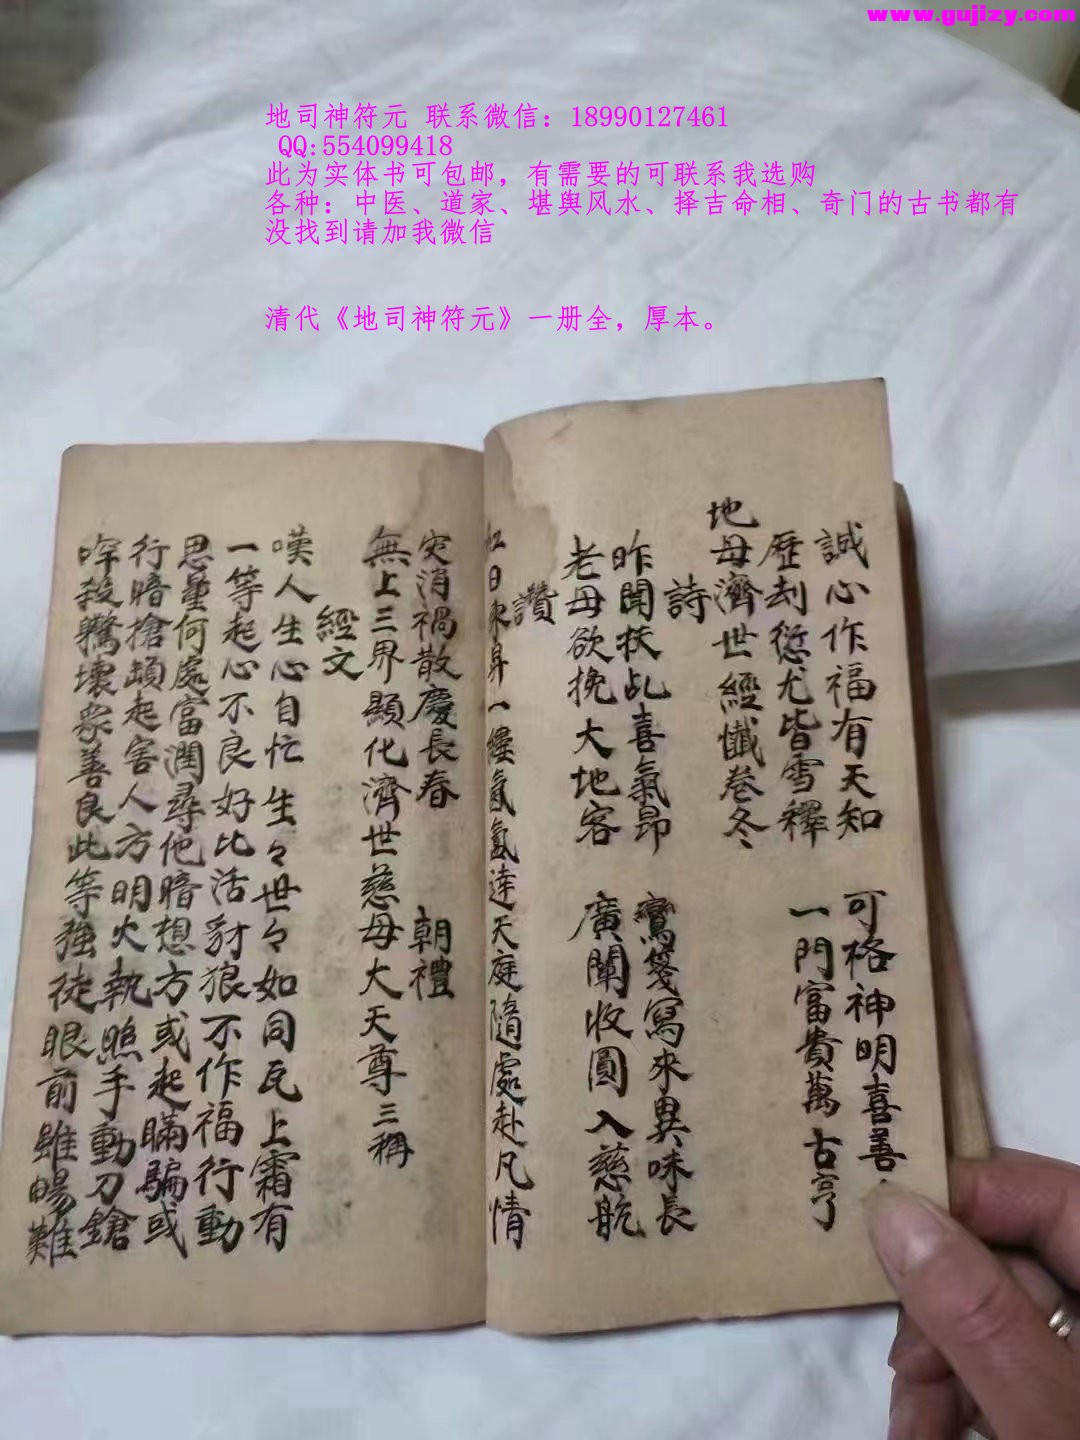 www.gujizy.com
地司神符元 联系微信：18990127461
QQ:554099418
此为实体书可包邮，有需要的可联系我选购
各种：中医、道家、堪舆风水、择吉命相、奇门的古书都有
没找到请加我微信
清代《地司神符元》一册全，厚本。
誠心作福有天知 可格神明喜善
歷刦愆尤皆雪釋 一門富貴萬古亨
地母濟世經懺卷冬
詩
昨聞扶乩喜氣昂 鸞箋寫來異味長
老母欲挽大地客 廣闡收圓入慈航
讚
紅日東昇一縷氤氳達天庭隨處赴凡情
灾消禍散慶長春 朝禮
無上三界顯化濟世慈母大天尊三稱
經文
嘆人生心自忙生々世々如同瓦上霜有
一等起心不良好比活豺狼不作福行動
思量何處富潤尋他暗想方或起瞞騙或
行暗搶頭起害人方明火執照手動刀鎗
哰殺驚壞眾善良此等強徒眼前雖暢難